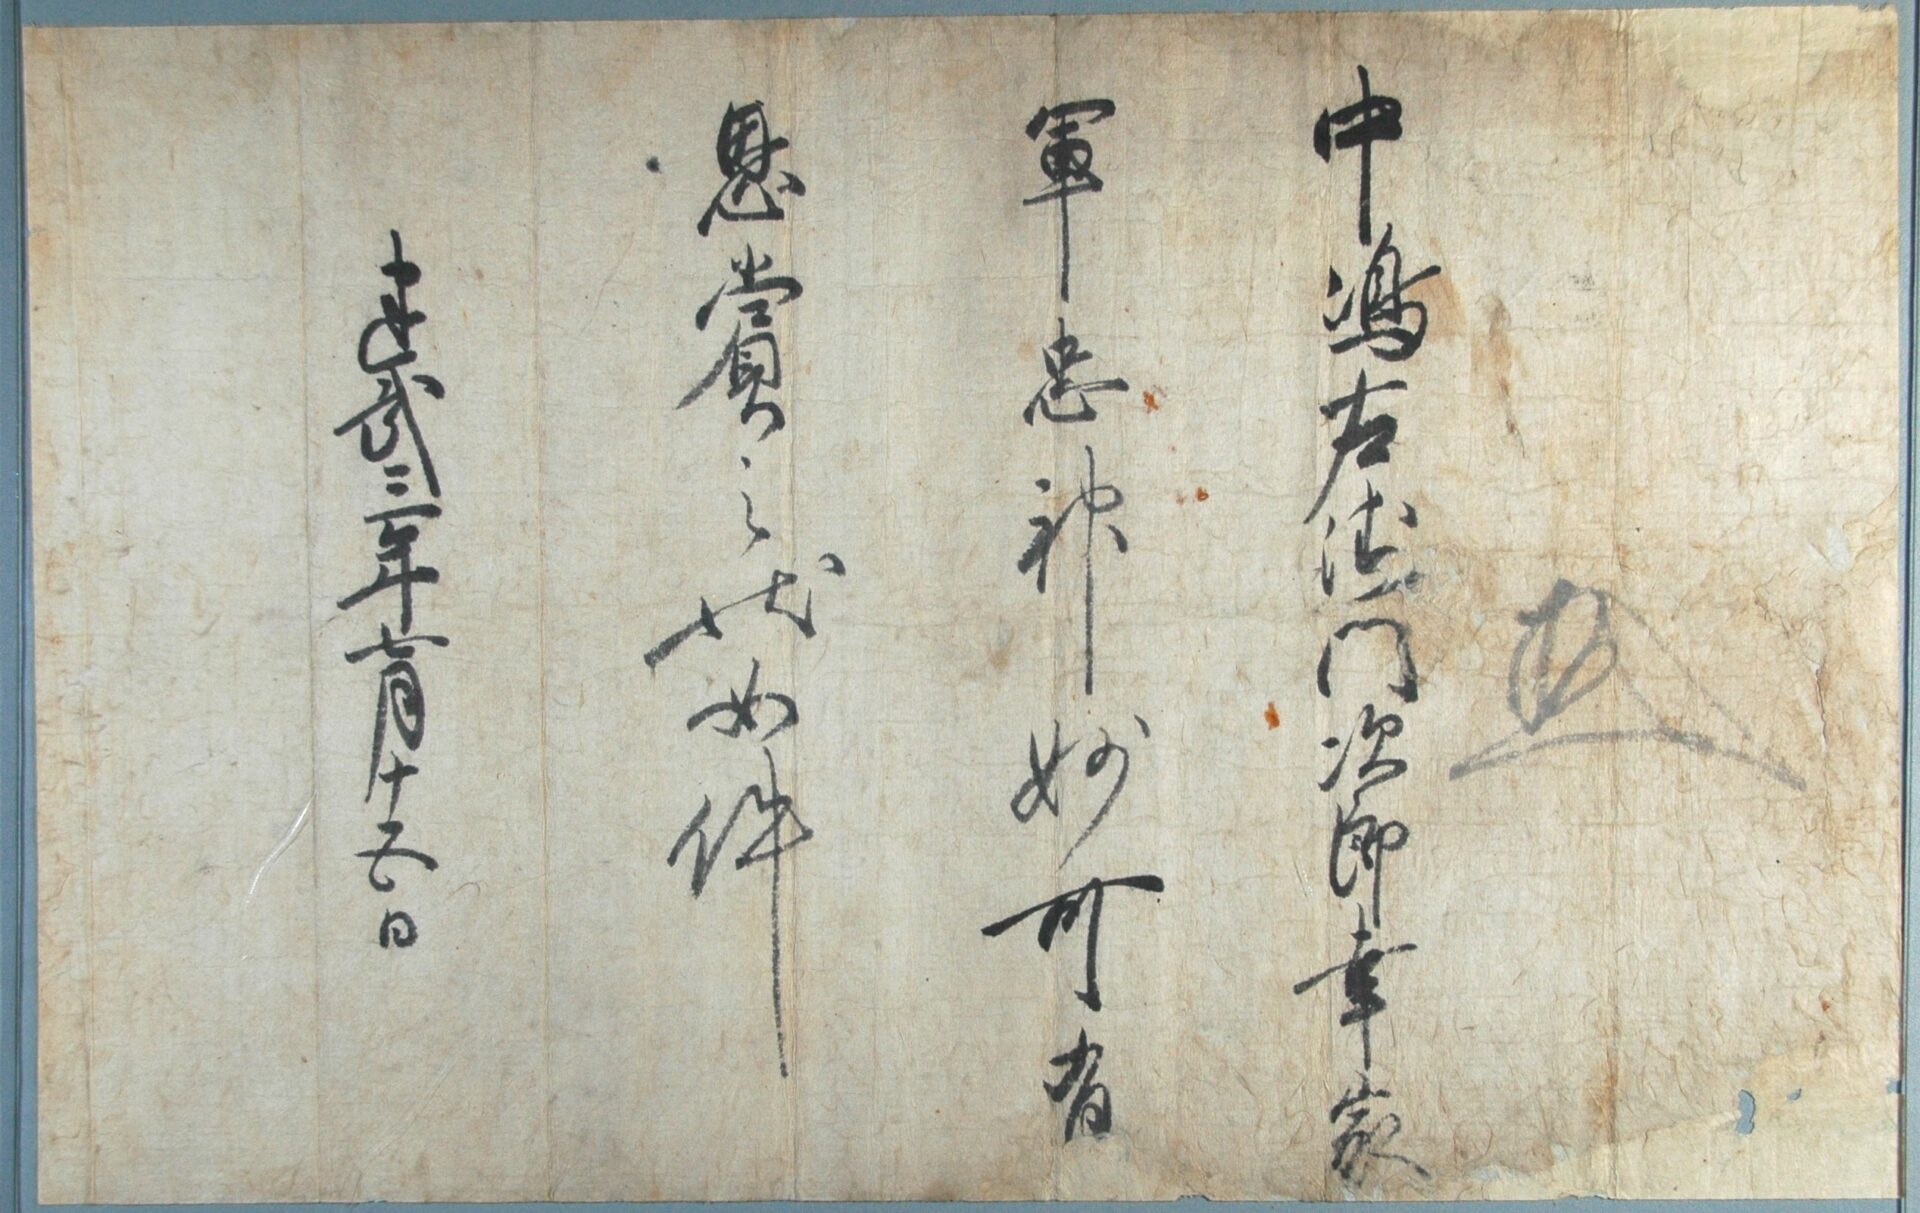 中嶋右衛門次郎幸家
軍忠神妙可有
恩賞之状如件
建武三年七月十五日